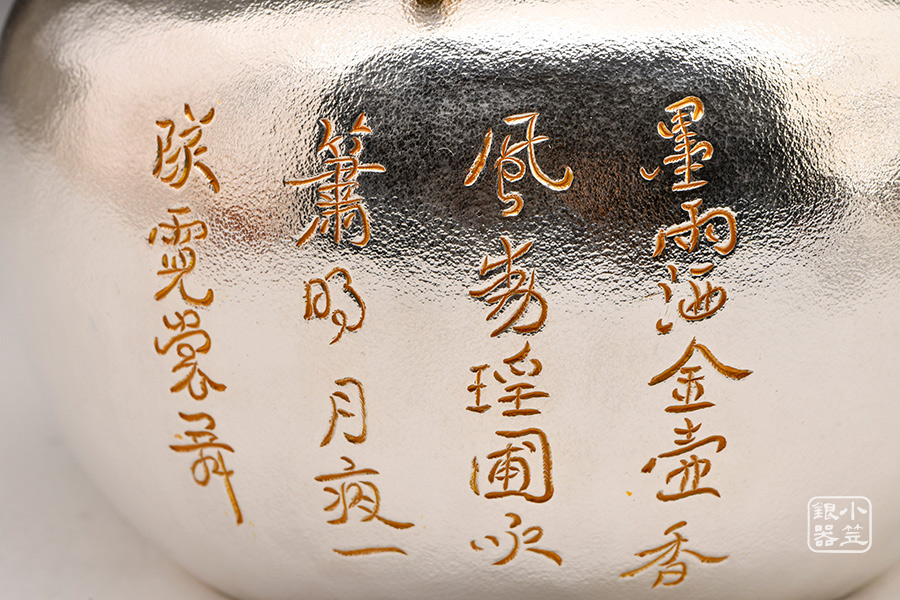 墨雨洒金壺香
風動瑤圃吹
簫明月夜一
隊霓裳舞
小笠
銀器